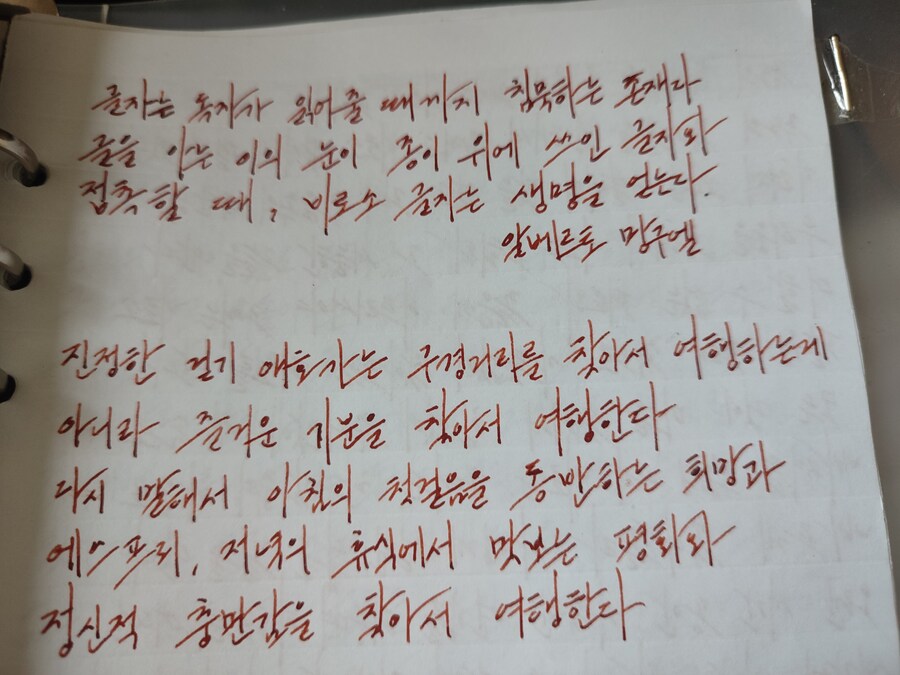 글자는 독자가 읽어줄 때까지 침묵하는 존재라
글을 아는 이의 눈이 종이 위에 쓰인 글자와
접촉할 때, 비로소 글자는 생명을 얻는다.
알베르토 망구엘
진정한 걷기 애호가는 구경거리를 찾아서 여행하는게
아니라 즐거운 기분을 찾아서 여행한다
다시 말해서 아침의 첫걸음을 동반하는 희망과
에스프리, 저녁의 휴식에서 맛보는 평화와
정신적 충만감을 찾아서 여행한다